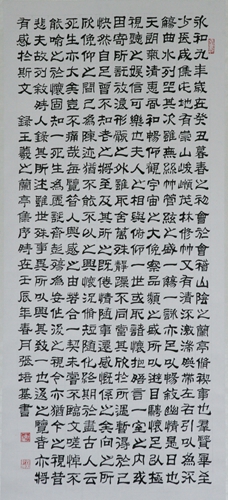 永和九年歲在癸丑暮春之初會於會稽山陰之蘭亭脩禊事也羣賢畢至
少長咸集此地有崇山峻嶺茂林脩竹又有清流激湍映帶左右引以為流
觴曲水列坐其次雖無絲竹管絃之盛一觴一詠亦足以暢敘幽情是日也
天朗氣清惠風和暢仰觀宇宙之大俯察品類之盛所以遊目騁懷足以極
視聽之娛信可樂也夫人之相與俯仰一世或取諸懷抱悟言一室之內或
因寄所託放浪形骸之外雖取舍萬殊靜躁不同當其欣於所遇暫得於己
快然自足不知老之將至及其所之既倦情隨事遷感慨係之矣向之所
欣俛仰之間已為陳迹猶不能不以之興懷況脩短隨化終期於盡古人云
死生亦大矣豈不痛哉每覽昔人興感之由若合一契未嘗不臨文嗟悼不
能喻之於懷固知一死生為虛誕齊彭殤為妄作後之視今亦猶今之視昔
悲夫故列敘時人錄其所述雖世殊事異所以興懷其致一也後之覽者亦將
有感於斯文 錄王羲之蘭亭集序時在壬辰年春月張培基書